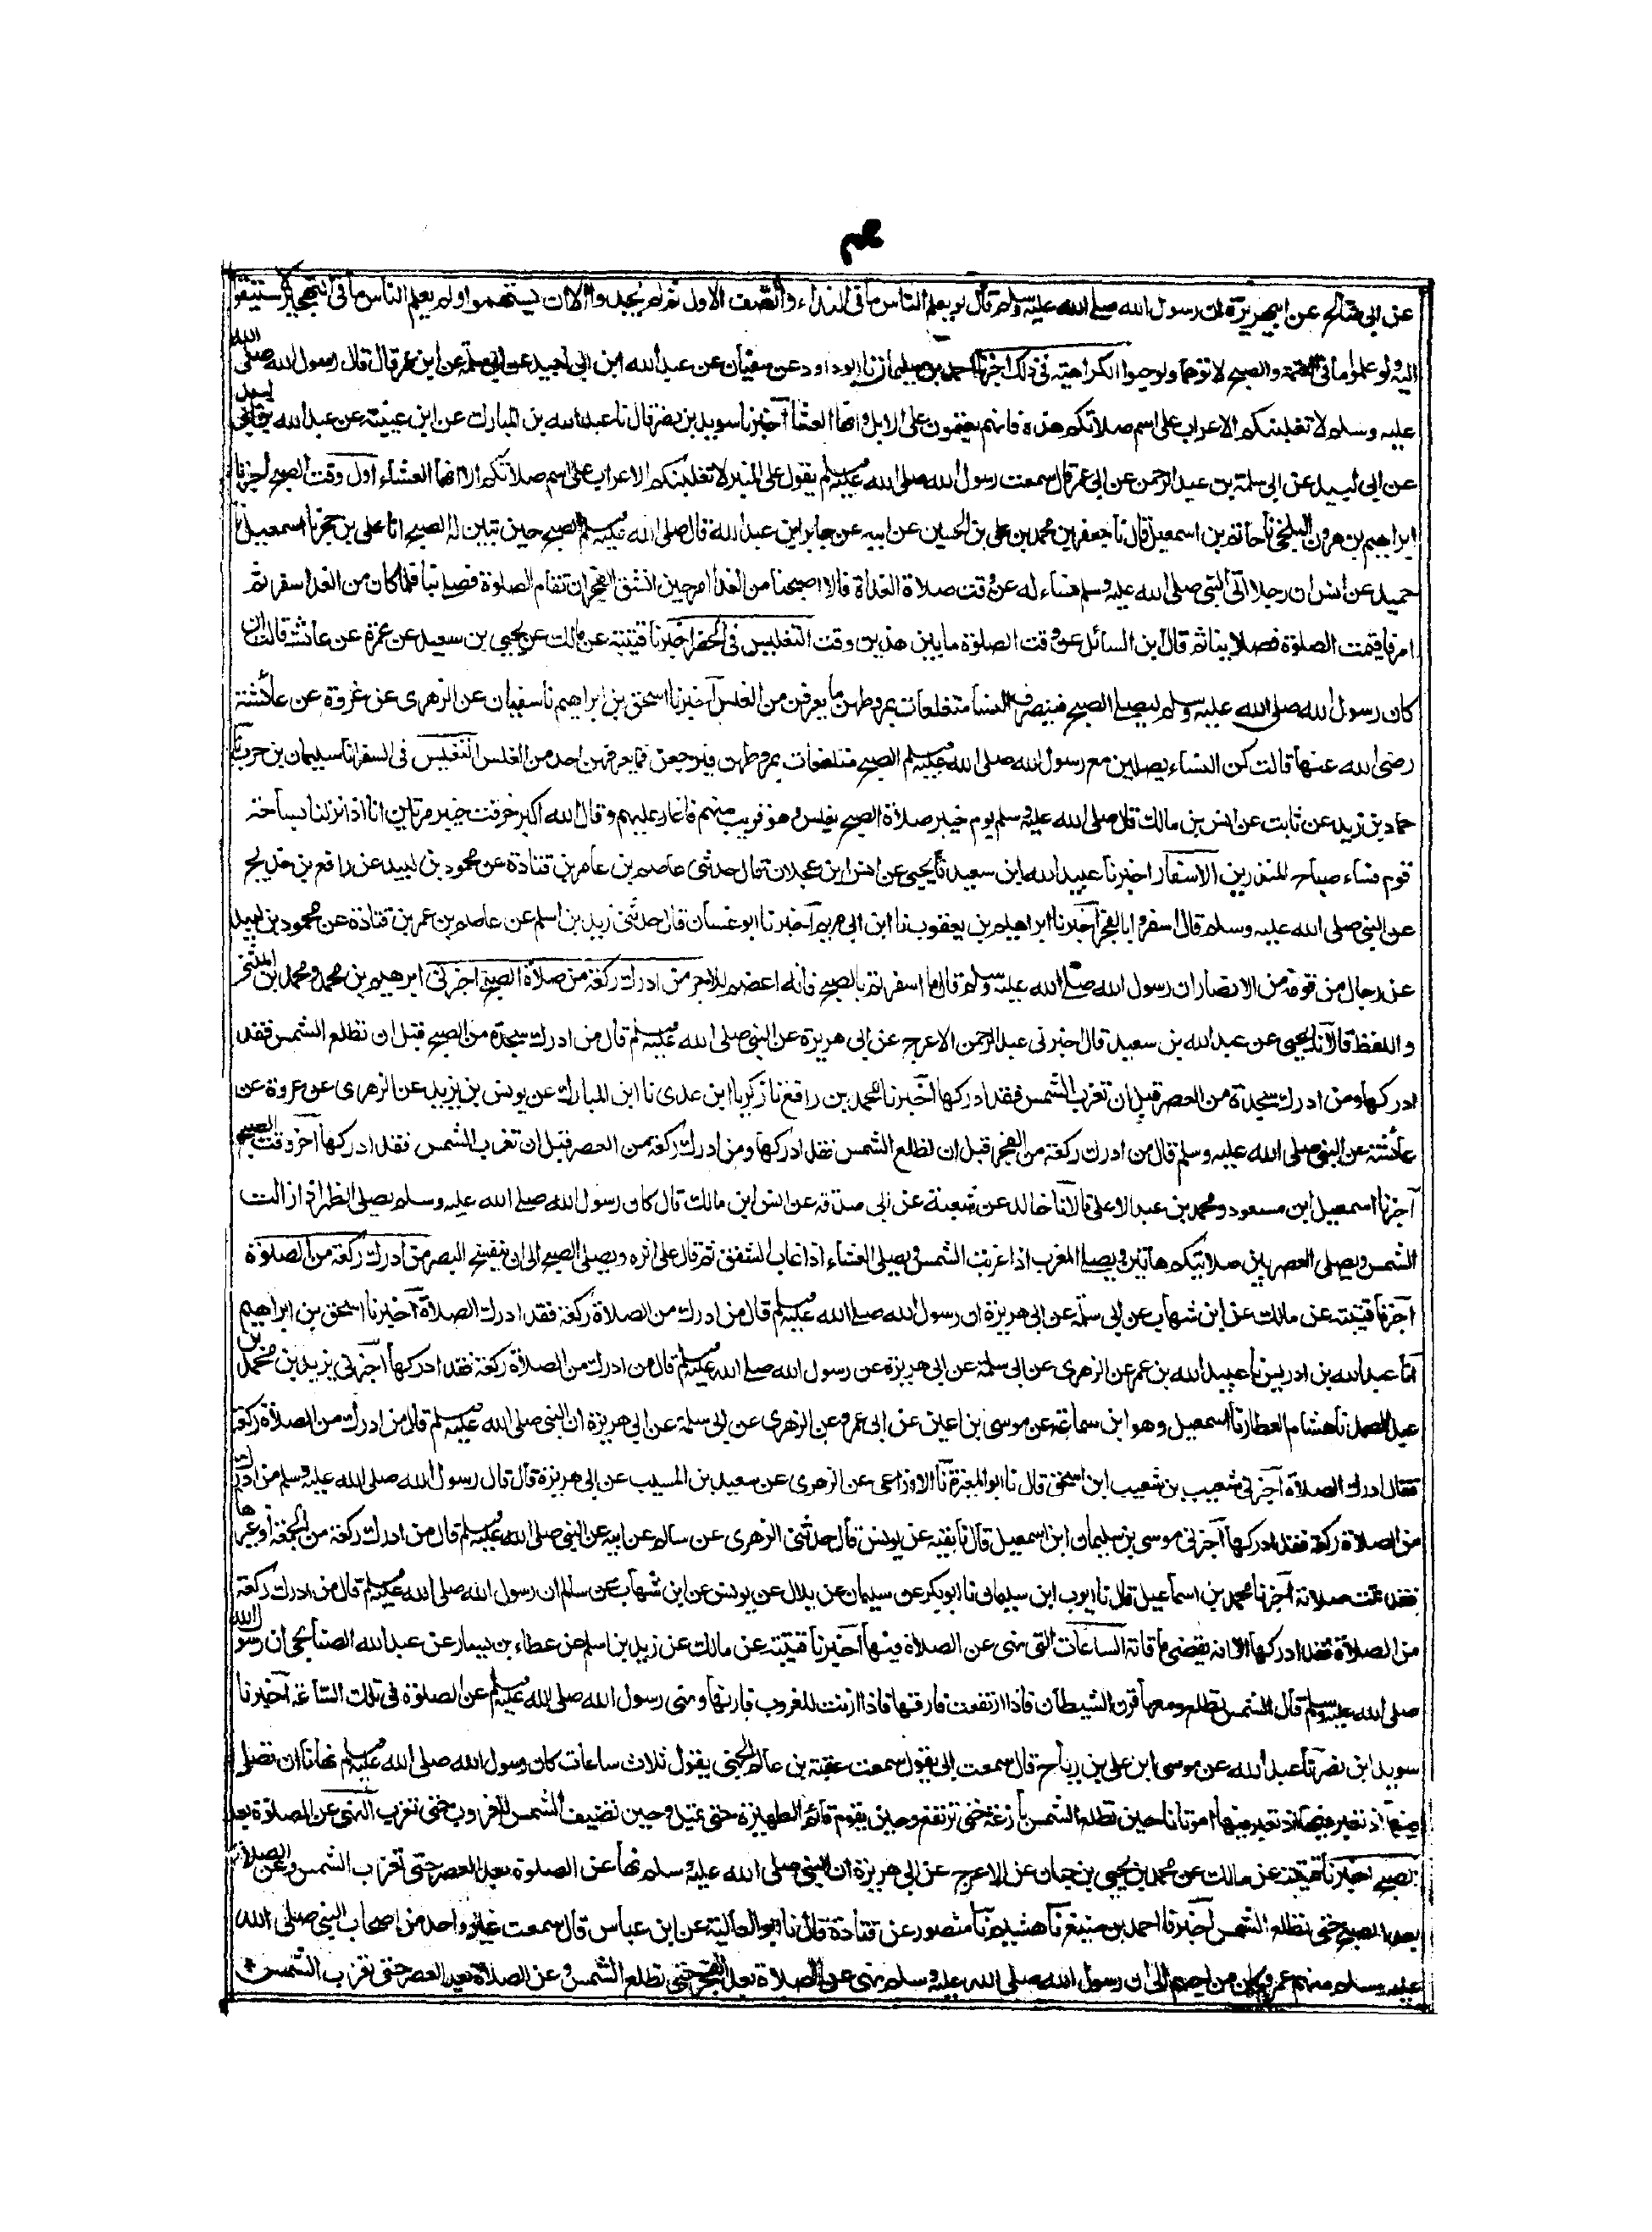 عن ابى صالح عن ابى هريرة ان رسول الله صلى الله عليه وسلم قال لو يعلم الناس ما فى النداء والصف الاول ثم لم يجدوا الا ان يستهموا ولو يعلم الناس ما فى التهجير لاستبقوا
اليه ولو علموا ما فى العتمة والصبح لاتوهما ولو حبوا الكراهية فى ذلك اخبرنا احمد بن سليمان نا ابو داود عن سفيان عن عبدالله ابن ابى لبيد عن ابى سلمة عن ابن عمر قال قال رسول الله صلى الله
عليه وسلم لا تغلبنكم الاعراب على اسم صلاتكم هذه فانهم يعتمون على الابل وانها العشاء اخبرنا سويد بن نصر قال نا عبدالله بن المبارك عن ابن عيينة عن عبدالله بن
عن ابى لبيد عن ابى سلمة بن عبد الرحمن عن ابى عمر قال سمعت رسول الله صلى الله عليه وسلم يقول على المنبر لا تغلبنكم الاعراب على اسم صلاتكم الا انها العشاء اول وقت الصبح اخبرنا
ابراهيم بن هرون البلخى نا حاتم بن اسمعيل قال نا جعفر بن محمد بن على بن الحسين عن ابيه عن جابر ابن عبد الله قال صلى الله عليه وسلم الصبح حين تبين له الصبح انا على بن حجر نا اسمعيل نا
حميد عن انس ان رجلا اتى النبى صلى الله عليه وسلم فساءله عن وقت صلاة الغداة فلما اصبحنا من الغد امر حين انشق الفجر ان تقام الصلوة فصلى بنا فلما كان من الغد اسفر ثم
امر فاقيمت الصلوة فصلا بنا ثم قال اين السائل عن وقت الصلوة ما بين هذين وقت التغليس فى الحضر اخبرنا قتيبة عن مالك عن يحيى بن سعيد عن عمرة عن عائشة قالت ان
كان رسول الله صلى الله عليه وسلم ليصلى الصبح فينصرف النساء متلفعات بمروطهن ما يعرفن من الغلس اخبرنا اسحق بن ابراهيم نا سفيان عن الزهرى عن عروة عن عائشة
رضى الله عنها قالت كن النساء يصلين مع رسول الله صلى الله عليه وسلم الصبح متلفعات بمروطهن فيرجعن فما يعرفهن احد من الغلس التغليس فى السفر انا سليمان بن حرب نا
حماد بن زيد عن ثابت عن انس بن مالك قال صلى الله عليه وسلم يوم خيبر صلاة الصبح بغلس وهو قريب منهم فاغار عليهم وقال الله اكبر خربت خيبر مرتين انا اذا نزلنا بساحة
قوم فساء صباح المنذرين الاسفار اخبرنا عبيد الله ابن سعيد نا يحيى عن ابن عجلان قال حدثنى عاصم بن عامر بن قتادة عن محمود بن لبيد عن رافع بن خديج
عن النبى صلى الله عليه وسلم قال اسفروا بالفجر اخبرنا ابراهيم بن يعقوب نا ابن ابى مريم اخبرنا ابو غسان قال حدثنى زيد بن اسلم عن عاصم بن عمر بن قتادة عن محمود بن لبيد
عن رجال من قومه من الانصار ان رسول الله صلى الله عليه وسلم قال ما اسفرتم بالصبح فانه اعظم للاجر من ادرك ركعة من صلاة الصبح اخبرنى ابرهيم بن محمد ومحمد بن المثنى
واللفظ قالا نا يحيى عن عبدالله بن سعيد قال اخبرنى عبد الرحمن الاعرج عن ابى هريرة عن النبى صلى الله عليه وسلم قال من ادرك سجدة من الصبح قبل ان تطلع الشمس فقد
ادركها ومن ادرك سجدة من العصر قبل ان تغرب الشمس فقد ادركها اخبرنا محمد بن رافع نا زكريا ابن عدى نا ابن المبارك عن يونس بن يزيد عن الزهرى عن عروة عن
عائشة عن النبى صلى الله عليه وسلم قال من ادرك ركعة من الفجر قبل ان تطلع الشمس فقد ادركها ومن ادرك ركعة من العصر قبل ان تغرب الشمس فقد ادركها آخر وقت الصبح
اخبرنا اسمعيل ابن مسعود ومحمد بن عبد الاعلى قالا نا خالد عن شعبة عن ابى صدقة عن انس ابن مالك قال كان رسول الله صلى الله عليه وسلم يصلى الظهر اذا زالت
الشمس ويصلى العصر بين صلاتيكم هاتين ويصلى المغرب اذا غربت الشمس ويصلى العشاء اذا غاب الشفق ثم قال على اثره ويصلى الصبح الى ان ينفسح البصر من ادرك ركعة من الصلوة
اخبرنا قتيبة عن مالك عن ابن شهاب عن ابى سلمة عن ابى هريرة ان رسول الله صلى الله عليه وسلم قال من ادرك من الصلاة ركعة فقد ادرك الصلاة اخبرنا اسحق بن ابراهيم
انا عبدالله بن ادريس نا عبيد الله بن عمر عن الزهرى عن ابى سلمة عن ابى هريرة عن رسول الله صلى الله عليه وسلم قال من ادرك من الصلاة ركعة فقد ادركها اخبرنى يزيد بن محمد بن
عبد الصمد نا هشام العطار نا اسمعيل وهو ابن سماعة عن موسى بن اعين عن ابى عمرو عن الزهرى عن ابى سلمة عن ابى هريرة ان النبى صلى الله عليه وسلم قال من ادرك من الصلاة ركعة
فقد ادرك الصلاة اخبرنى شعيب بن شعيب ابن اسحق قال نا ابو المغيرة نا الاوزاعى عن الزهرى عن سعيد بن المسيب عن ابى هريرة قال قال رسول الله صلى الله عليه وسلم من ادرك
من الصلاة ركعة فقد ادركها اخبرنى موسى بن سليمان ابن اسمعيل قال نا بقية عن يونس قال حدثنى الزهرى عن سالم عن ابيه عن النبى صلى الله عليه وسلم قال من ادرك ركعة من الجمعة او غيرها
فقد تمت صلاته اخبرنا محمد بن اسماعيل قال نا ايوب ابن سليمان نا ابو بكر عن سليمان عن بلال عن يونس عن ابن شهاب عن سالم ان رسول الله صلى الله عليه وسلم قال من ادرك ركعة
من الصلاة فقد ادركها الا انه يقضى ما فاته الساعات التى نهى عن الصلاة فيها اخبرنا قتيبة عن مالك عن زيد بن اسلم عن عطاء بن يسار عن عبدالله الصنابحى ان رسول الله
صلى الله عليه وسلم قال الشمس تطلع ومعها قرن الشيطان فاذا ارتفعت فارقها فاذا ادنت للغروب قارنها ونهى رسول الله صلى الله عليه وسلم عن الصلوة فى تلك الساعة اخبرنا
سويد ابن نصر نا عبدالله عن موسى ابن على بن رباح قال سمعت ابى يقول سمعت عقبة بن عامر الجهنى يقول ثلاث ساعات كان رسول الله صلى الله عليه وسلم نهانا ان نصلى
فيهن او نقبر فيها امواتنا حين تطلع الشمس بازغة حتى ترتفع وحين يقوم قائم الظهيرة حتى تميل وحين تضيف الشمس للغروب حتى تغرب النهى عن الصلاة بعد
الصبح اخبرنا قتيبة عن مالك عن محمد بن يحيى بن حبان عن الاعرج عن ابى هريرة ان النبى صلى الله عليه وسلم نها عن الصلوة بعد العصر حتى تغرب الشمس وعن الصلاة
بعد الصبح حتى تطلع الشمس اخبرنا احمد بن منيع نا هشيم نا منصور عن قتادة قال نا ابو العالية عن ابن عباس قال سمعت غير واحد من اصحاب النبى صلى الله
عليه وسلم منهم عمر وكان من احبهم الى ان رسول الله صلى الله عليه وسلم نهى عن الصلاة بعد الفجر حتى تطلع الشمس وعن الصلاة بعد العصر حتى تغرب الشمس